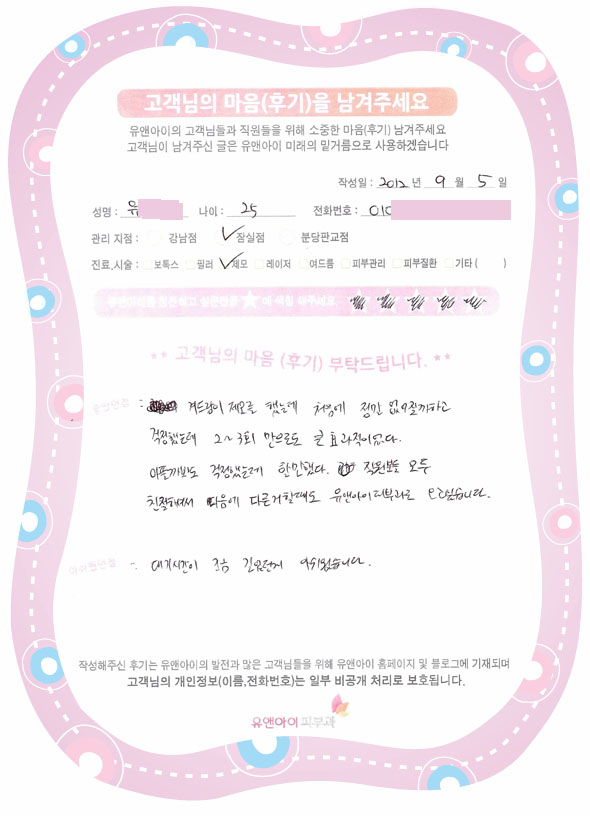 고객님의 마음(후기)을 남겨주세요
유앤아이의 고객님들과 직원들을 위해 소중한 마음(후기) 남겨주세요
고객님이 남겨주신 글은 유앤아이 미래의 밑거름으로 사용하겠습니다
작성일 : 2012 년 9 월 5 일
성명 : 유 나이 : 25 전화번호 : 010
관리 지점 : 강남점 잠실점 분당판교점
진료,시술 : 보톡스 필러 제모 레이저 여드름 피부관리 피부질환 기타 ( )
유앤아이를 방문하고 싶은만큼 ★ 에 색칠 해주세요
** 고객님의 마음 (후기) 부탁드립니다. **
: 겨드랑이 제모를 했는데 처음에 정말 없어질까하고
걱정했는데 2~3회 만으로도 큰 효과적이었다.
아플까봐도 걱정했는데 한만했다. 직원분들 모두
친절해서 다음에 다른거할때도 유앤아이피부과로 오고싶습니다.
아쉬웠던점 : 대기시간이 조금 길었던게 아쉬웠습니다.
작성해주신 후기는 유앤아이의 발전과 많은 고객님들을 위해 유앤아이 홈페이지 및 블로그에 기재되며
고객님의 개인정보(이름,전화번호)는 일부 비공개 처리로 보호됩니다.
유앤아이 피부과